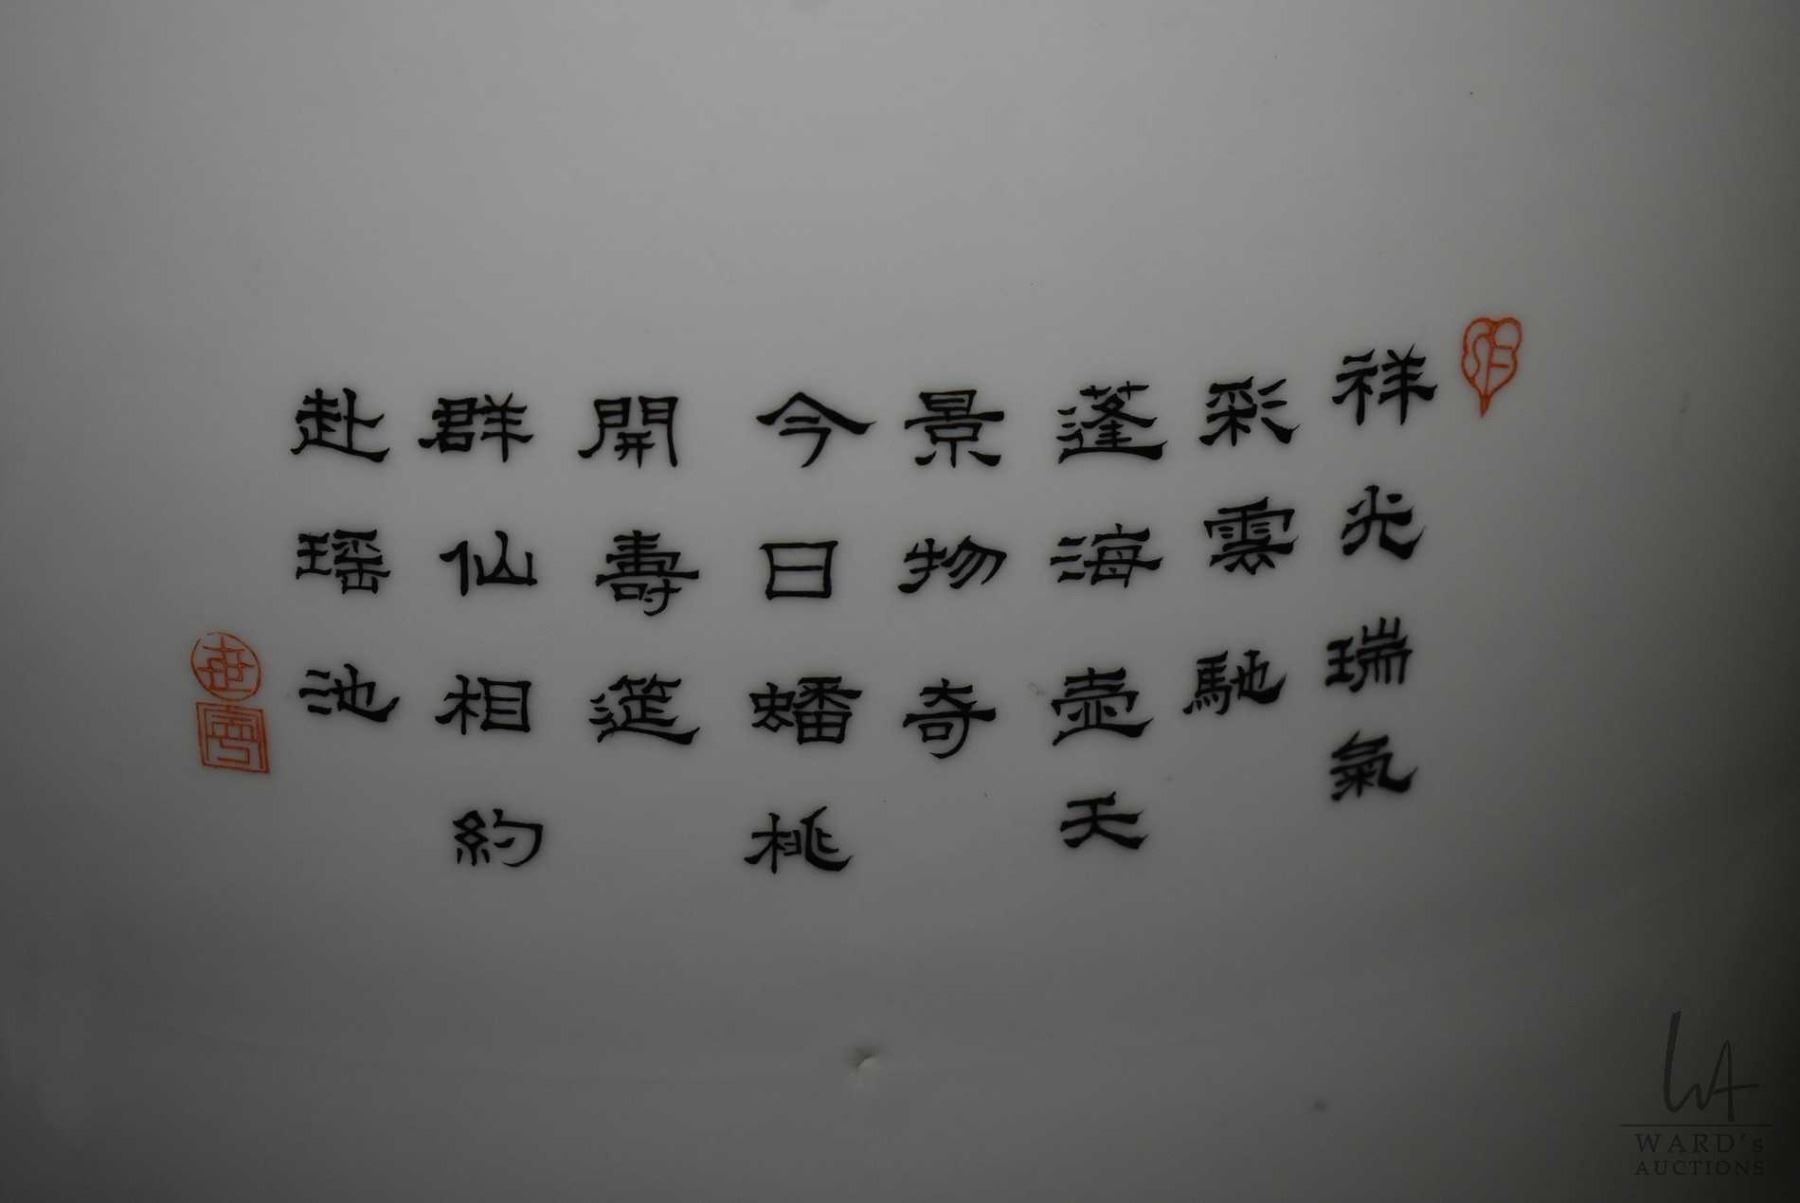 祥光瑞氣
彩雲馳
蓬海壺天
景物奇
今日蟠桃
開壽筵
群仙相約
赴瑶池
WARD's
AUCTIONS